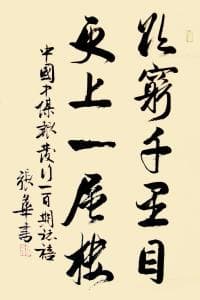 欲窮千里目
更上一層樓
中國少保報發行一百期誌禧
張華書